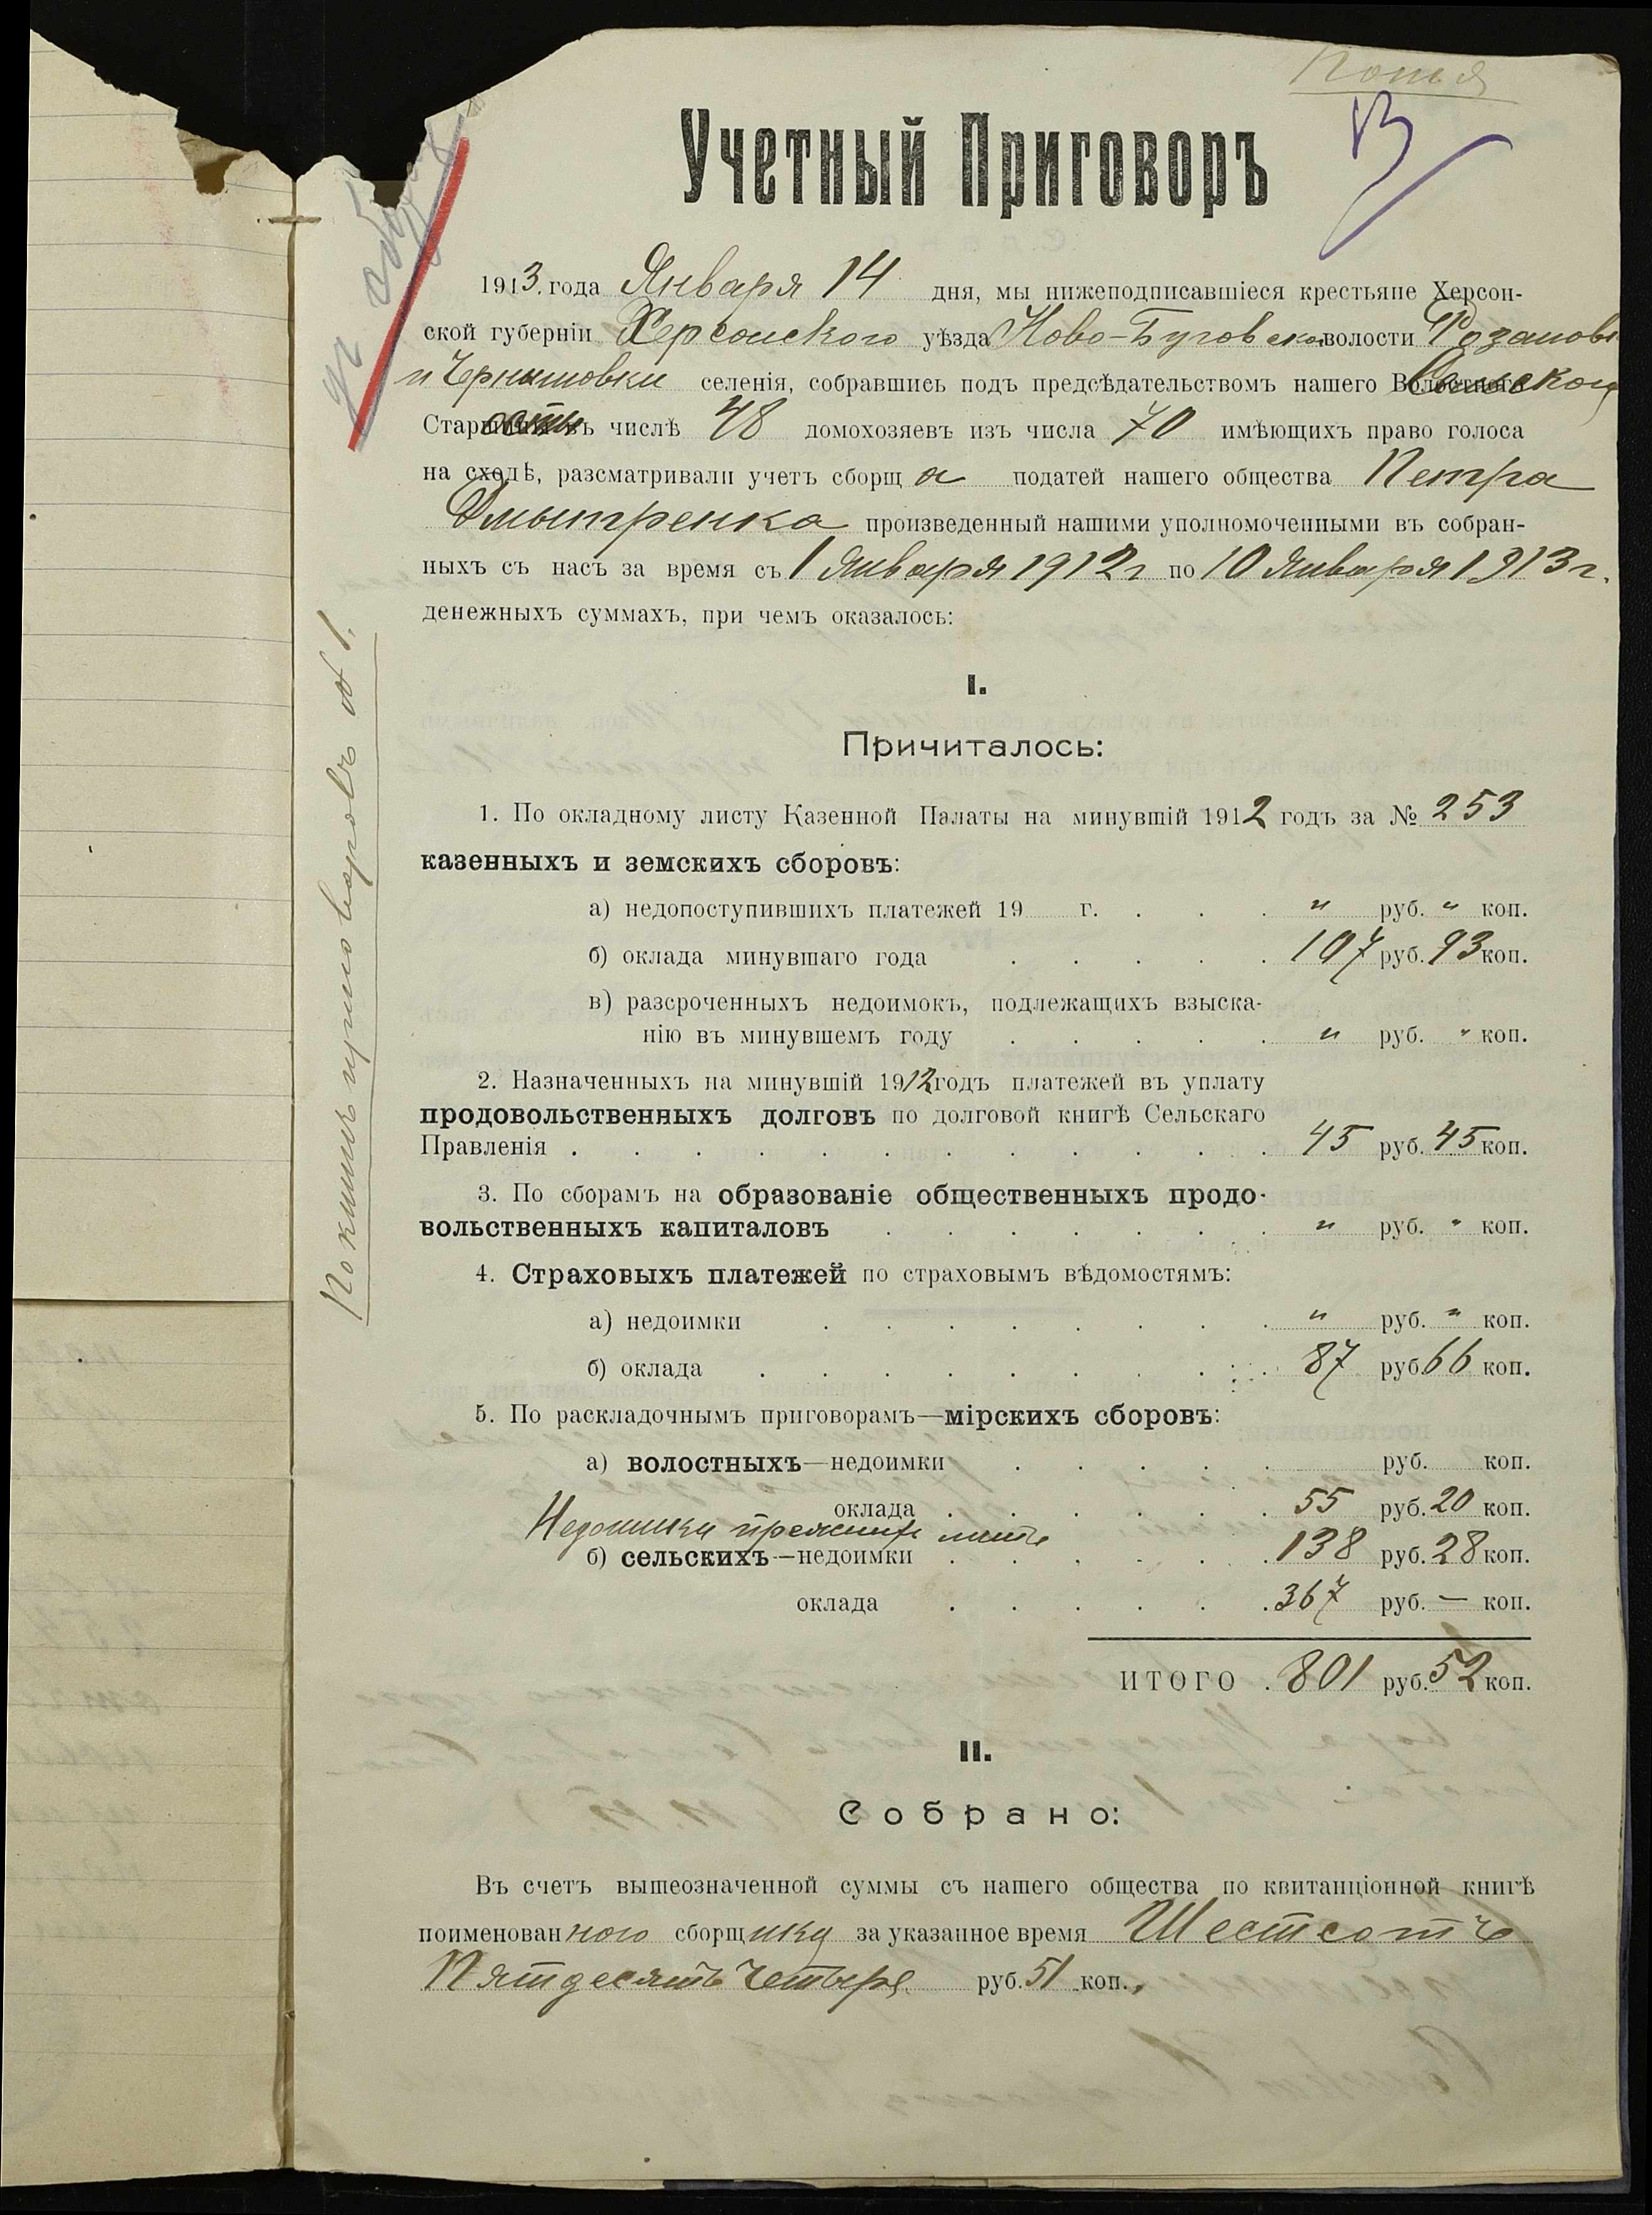 Копія
Учетный Приговоръ
1913 года Января 14 дня, мы нижеподписавшіеся крестьяне Херсон-
ской губерніи Херсонского уѣзда Ново-Бугской волости Розановк
и Чернышовки селенія, собравшись подъ предсѣдательствомъ нашего Сельского
Старосты въ числѣ 48 домохозяевъ изъ числа 70 имѣющихъ право голоса
на сходѣ, разсматривали учетъ сборща податей нашего общества Петра
Дмытренка произведенный нашими уполномоченными въ собран-
ныхъ съ насъ за время съ 1 Января 1912 г по 10 Января 1913 г.
денежныхъ суммахъ, при чемъ оказалось:
По книгѣ приговоровъ № 1.
I.
Причиталось:
1. По окладному листу Казенной Палаты на минувшій 1912 годъ за № 253
казенныхъ и земскихъ сборовъ:
а) недопоступившихъ платежей 19 г. . . . " руб. " коп.
б) оклада минувшаго года . . . . . 107 руб. 93 коп.
в) разсроченныхъ недоимокъ, подлежащихъ взыска-
нію въ минувшемъ году . . . . . " руб. " коп.
2. Назначенныхъ на минувшій 1912 годъ платежей въ уплату
продовольственныхъ долговъ по долговой книгѣ Сельскаго
Правленія . . . . . . . . . . . . 45 руб. 45 коп.
3. По сборамъ на образованіе общественныхъ продо-
вольственныхъ капиталовъ . . . . . . . " руб. " коп.
4. Страховыхъ платежей по страховымъ вѣдомостямъ:
а) недоимки . . . . . . . . " руб. " коп.
б) оклада . . . . . . . . . 87 руб. 66 коп.
5. По раскладочнымъ приговорамъ—мірскихъ сборовъ:
а) волостныхъ—недоимки . . . . . руб. коп.
оклада . . . . . . 55 руб. 20 коп.
Недоимки прежнихъ летъ
б) сельскихъ—недоимки . . . . . . 138 руб. 28 коп.
оклада . . . . . . 367 руб. — коп.
ИТОГО . 801 руб. 52 коп.
II.
Собрано:
Въ счетъ вышеозначенной суммы съ нашего общества по квитанціонной книгѣ
поименованного сборщику за указанное время Шестсотъ
Пятдесятъ четыре руб. 51 коп.